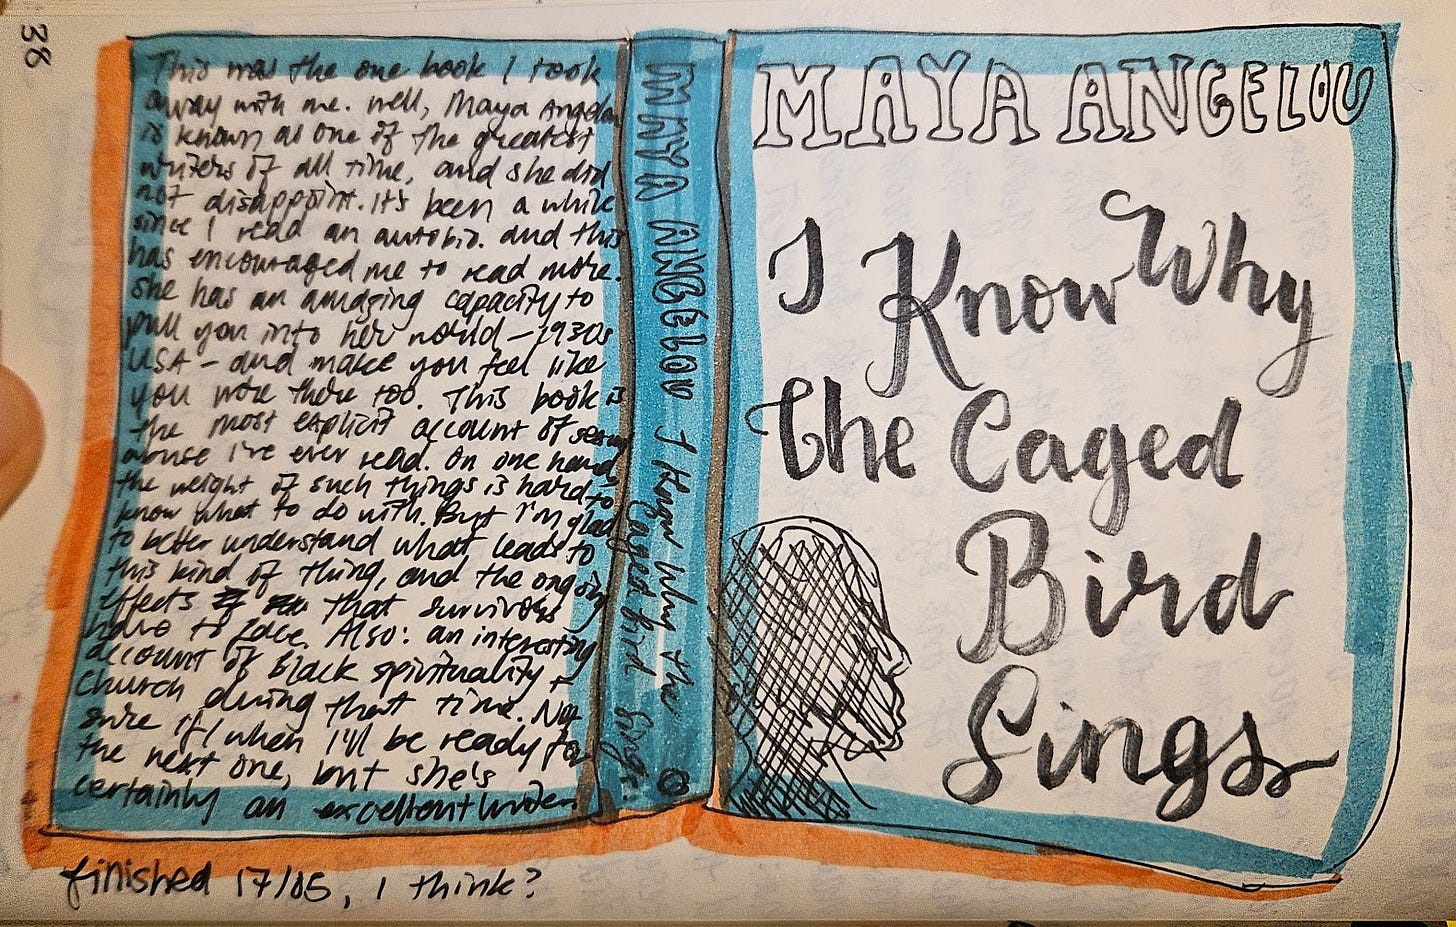 38
This was the one book I took
away with me. Well, Maya Angelou
is known as one of the greatest
writers of all time, and she did
not disappoint. It's been a while
since I read an autobio. and this
has encouraged me to read more.
She has an amazing capacity to
pull you into her world – 1930s
USA – and make you feel like
you were there too. This book is
the most explicit account of sexual
abuse I've ever read. On one hand,
the weight of such things is hard to
know what to do with. But I'm glad
to better understand what leads to
this kind of thing, and the ongoing
effects that survivors
have to face. Also: an interesting
account of Black spirituality +
church during that time. Not
sure if/when I'll be ready for
the next one, but she's
certainly an excellent writer.
finished 17/05, I think?
MAYA ANGELOU I Know Why the
Caged Bird Sings
MAYA ANGELOU
I Know Why
the Caged
Bird
Sings